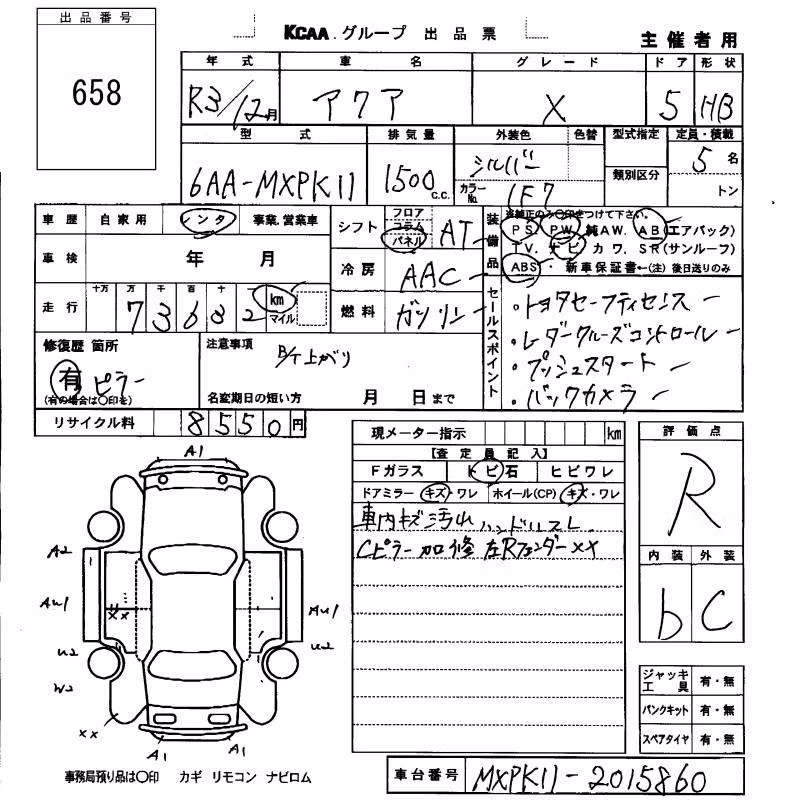 出品番号
658
KCAA グループ 出品票
主催者用
年式 車名 グレード ドア 形状
R3/12月 アクア X 5 HB
型式 排気量 外装色 色替 型式指定 定員・積載
6AA-MXPK11 1500 c.c. シルバー 類別区分 5名
カラーNo. 1F7 トン
車歴 自家用 レンタ 事業.営業車
シフト フロア コラム パネル AT
装備品
※純正のみ○印をつけて下さい。
PS PW 純AW. AB(エアバック)
TV. ナビ カワ. SR(サンルーフ)
ABS・新車保証書←(注)後日送りのみ
車検 年 月
冷房 AAC
走行 十万 万 千 百 十 km マイル
73682
燃料 ガソリン
セールスポイント
・トヨタセーフティセンス
・レーダークルーズコントロール
・プッシュスタート
・バックカメラ
修復歴 箇所
有 ピラー
(有の場合は○印を)
注意事項
B/T上がり
名変期日の短い方 月 日まで
リサイクル料 8550円
現メーター指示 km
【査定員記入】
Fガラス トビ石 ヒビワレ
ドアミラー キズ・ワレ ホイール(CP) キズ・ワレ
車内キズ汚れ ハンドルスレ
Cピラー加修 左Rフェンダーxx
評価点
R
内装 外装
b C
A1
A2
Au1
xx
Au1
u2
u2
W2
xx
A1
A1
ジャッキ工具 有・無
パンクキット 有・無
スペアタイヤ 有・無
事務局預り品は○印 カギ リモコン ナビロム
車台番号 MXPK11-2015860